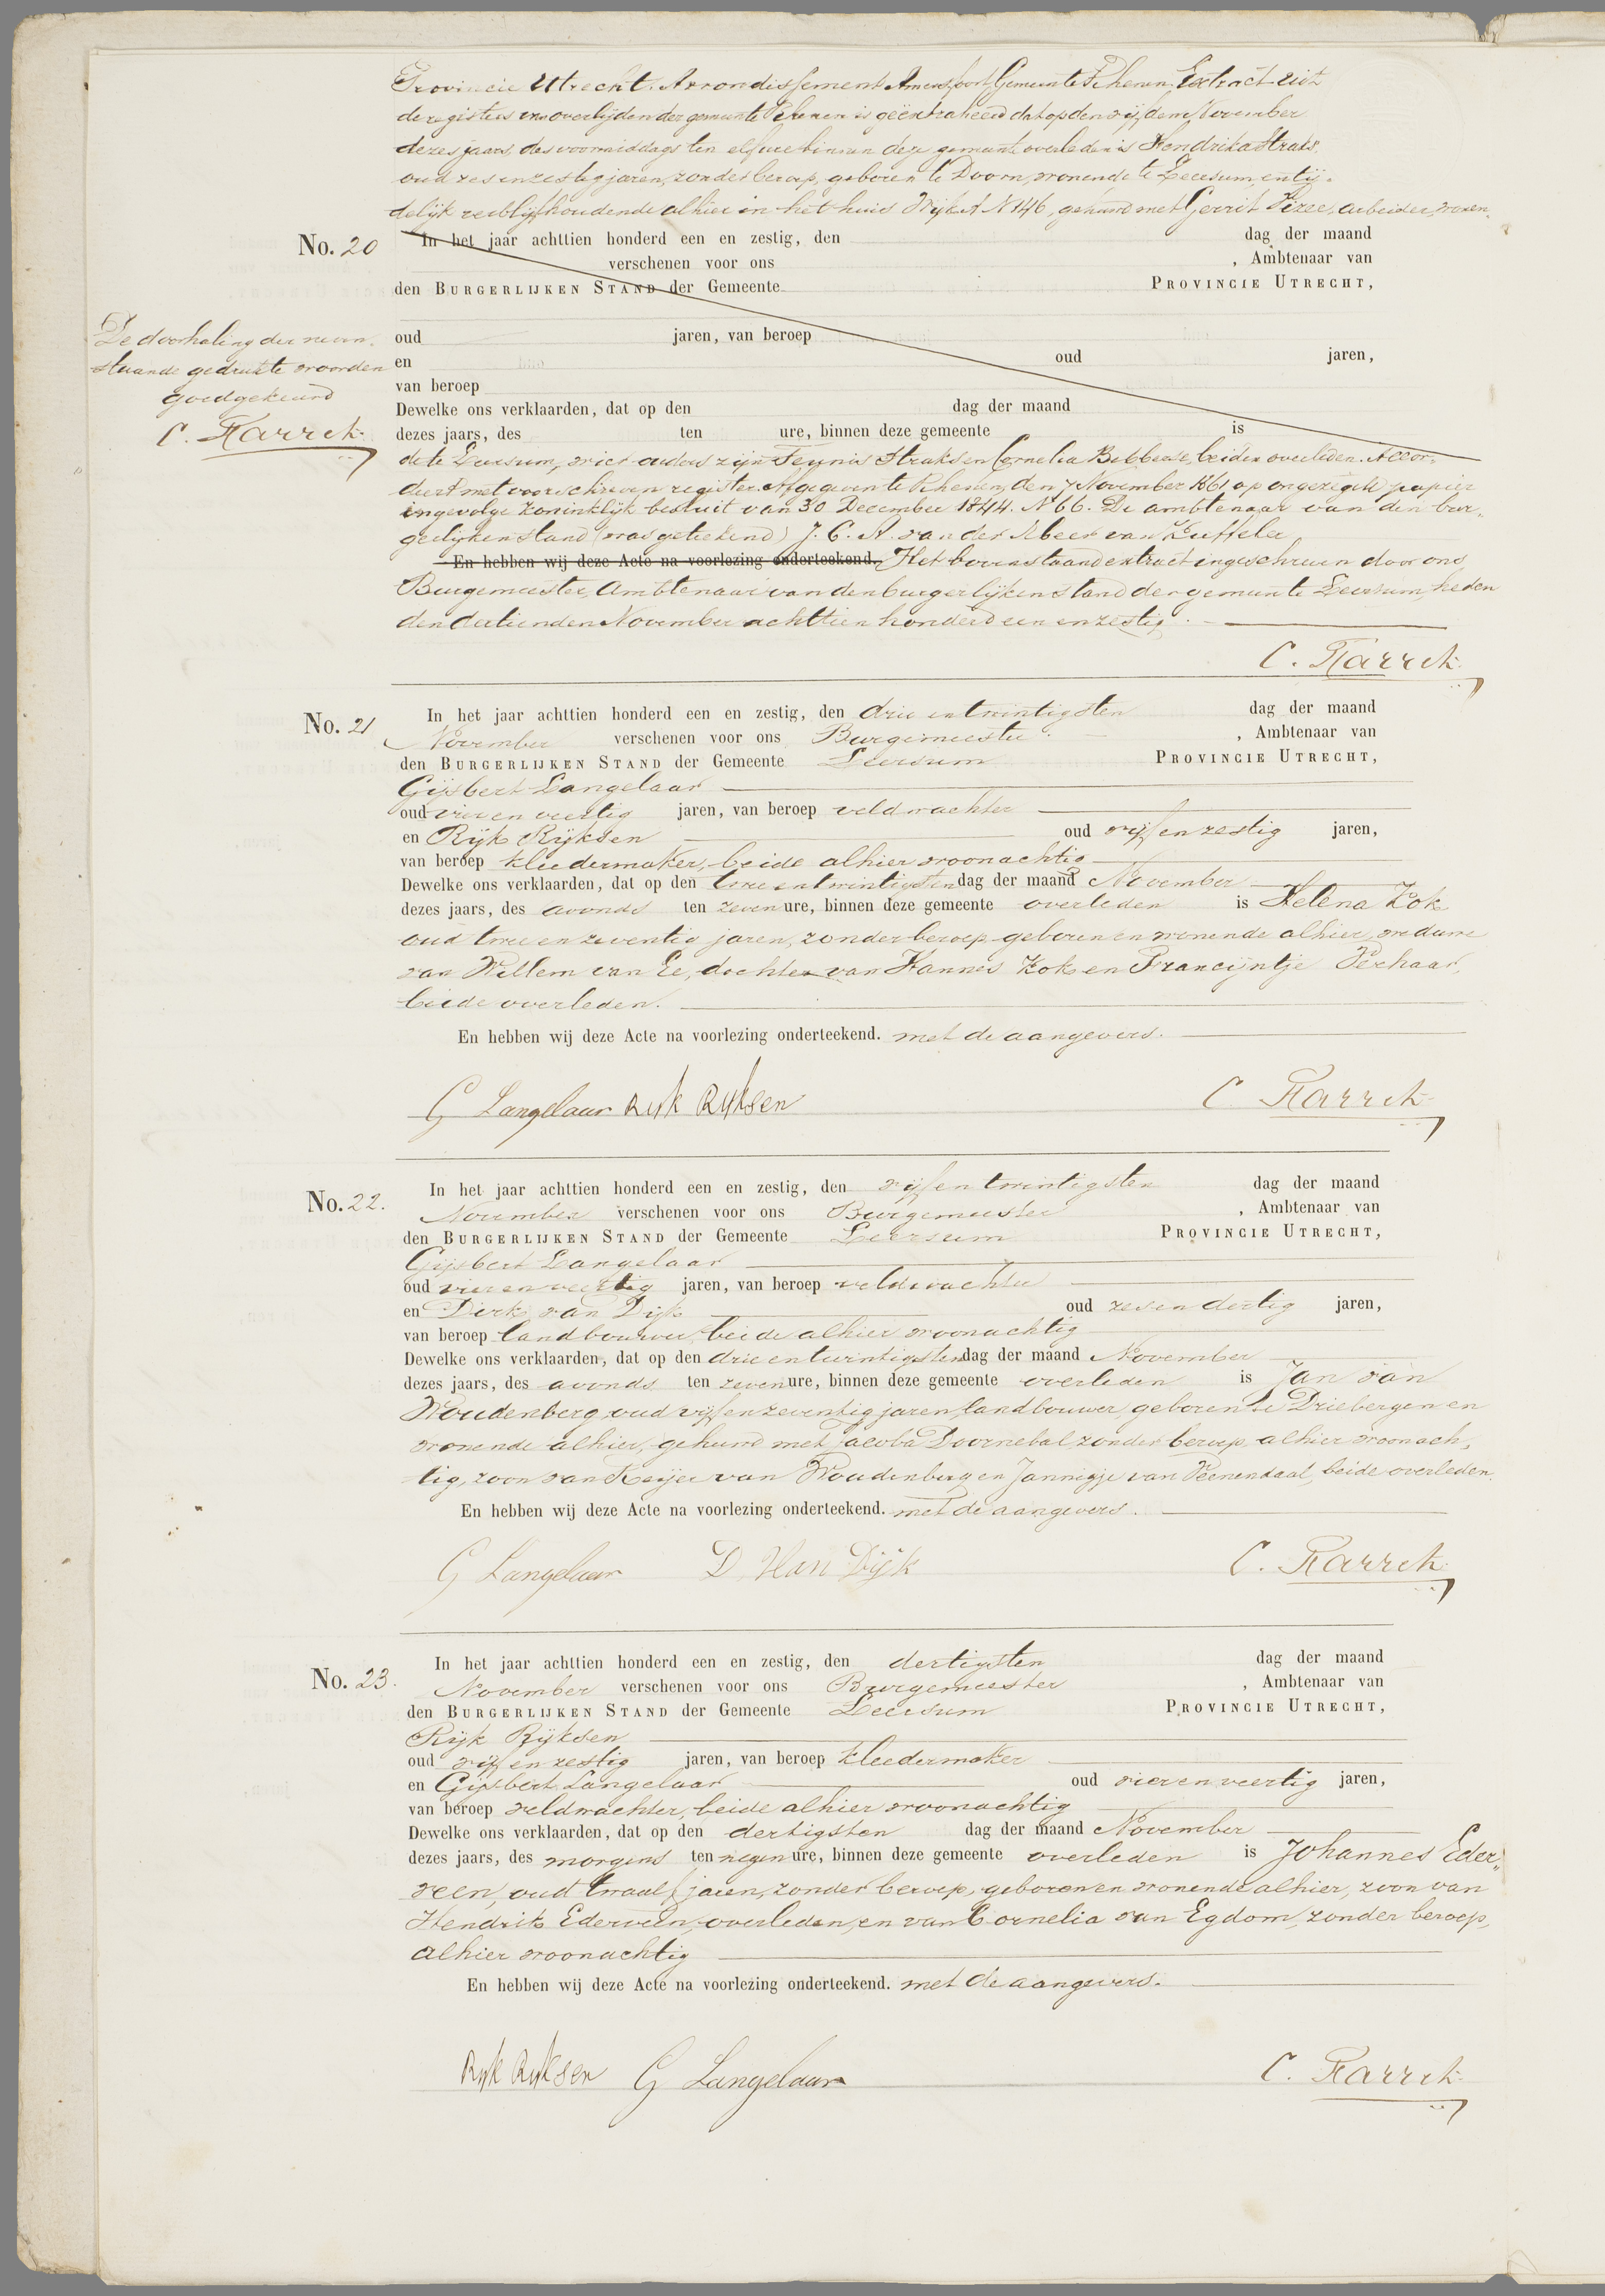 Provincie Utrecht. Arrondissement Amersfoort Gemeente Rhenen Extract uit
de registers van overlijden der gemeente Rhenen is geëxtraheerd dat op den vijfden November
dezes jaars, des voormiddags ten elf ure binnen deze gemeente overleden is Hendrika Straks,
oud zes en zestig jaren, zonder beroep, geboren te Doorn, wonende te Leersum, en tij-
delijk verblijfhoudende alhier in het huis Wijk A N 146, gehuwd met Gerrit Vizee, arbeider, wonen-
No. 20
In het jaar achttien honderd een en zestig, den dag der maand
verschenen voor ons , Ambtenaar van
den BURGERLIJKEN STAND der Gemeente PROVINCIE UTRECHT,
De doorhaling der neven-
staande gedrukte woorden
goedgekeurd
C. Karrek
oud jaren, van beroep
en oud jaren,
van beroep
Dewelke ons verklaarden, dat op den dag der maand
dezes jaars, des ten ure, binnen deze gemeente is
de te Leersum, wier ouders zijn Teunis Straks en Cornelia beiden overleden. Accor-
deert met voorschreven register. Afgegeven te Rhenen, den 7 November 1861 op ongezegeld papier
ingevolge Koninklijk besluit van 30 December 1844. N 66. De ambtenaar van den bur-
gerlijken stand (was geteekend) J. C. A. van der Meer van Kuffeler
En hebben wij deze Acte na voorlezing onderteekend. Het bovenstaand extract ingeschreven door ons
Burgemeester, Ambtenaar van den burgerlijken stand der gemeente Leersum, heden
den dertienden November achttien honderd een en zestig.
C. Karrek
No. 21
In het jaar achttien honderd een en zestig, den drie en twintigsten dag der maand
November verschenen voor ons Burgemeester , Ambtenaar van
den BURGERLIJKEN STAND der Gemeente Leersum PROVINCIE UTRECHT,
Gijsbert Langelaar
oud vier en veertig jaren, van beroep veldwachter
en Rijk Rijksen oud vijf en zestig jaren,
van beroep kleedermaker, beide alhier woonachtig
Dewelke ons verklaarden, dat op den twee en twintigsten dag der maand November
dezes jaars, des avonds ten zeven ure, binnen deze gemeente overleden is Helena Kok
oud twee en zeventig jaren, zonder beroep geboren en wonende alhier, weduwe
van Willem van Ee, dochter van Hannes Kok en Francijntje Verhaar,
beide overleden.
En hebben wij deze Acte na voorlezing onderteekend. met de aangevers.
G Langelaar Rijk Rijksen C Karrek
No. 22.
In het jaar achttien honderd een en zestig, den vijf en twintigsten dag der maand
November verschenen voor ons Burgemeester , Ambtenaar van
den BURGERLIJKEN STAND der Gemeente Leersum PROVINCIE UTRECHT,
Gijsbert Langelaar
oud vier en veertig jaren, van beroep veldwachter
en Dirk van Dijk oud zes en dertig jaren,
van beroep landbouwer, beide alhier woonachtig
Dewelke ons verklaarden, dat op den drie en twintigsten dag der maand November
dezes jaars, des avonds ten zeven ure, binnen deze gemeente overleden is Jan van
Woudenberg oud vijf en zeventig jaren, landbouwer, geboren te Driebergen en
wonende alhier, gehuwd met Jacoba Doornebal, zonder beroep, alhier woonach-
tig, zoon van Reijer van Woudenberg en Jannigje van Veenendaal, beide overleden.
En hebben wij deze Acte na voorlezing onderteekend. met de aangevers.
G Langelaar D. van Dijk C. Karrek
No. 23.
In het jaar achttien honderd een en zestig, den dertigsten dag der maand
November verschenen voor ons Burgemeester , Ambtenaar van
den BURGERLIJKEN STAND der Gemeente Leersum PROVINCIE UTRECHT,
Rijk Rijksen
oud vijf en zestig jaren, van beroep kleedermaker
en Gijsbert Langelaar oud vier en veertig jaren,
van beroep veldwachter, beide alhier woonachtig
Dewelke ons verklaarden, dat op den dertigsten dag der maand November
dezes jaars, des morgens ten negen ure, binnen deze gemeente overleden is Johannes Eder-
veen, oud twaalf jaren, zonder beroep, geboren en wonende alhier, zoon van
Hendrik Ederveen, overleden, en van Cornelia van Egdom, zonder beroep,
alhier woonachtig
En hebben wij deze Acte na voorlezing onderteekend. met de aangevers.
Rijk Rijksen G Langelaar C. Karrek